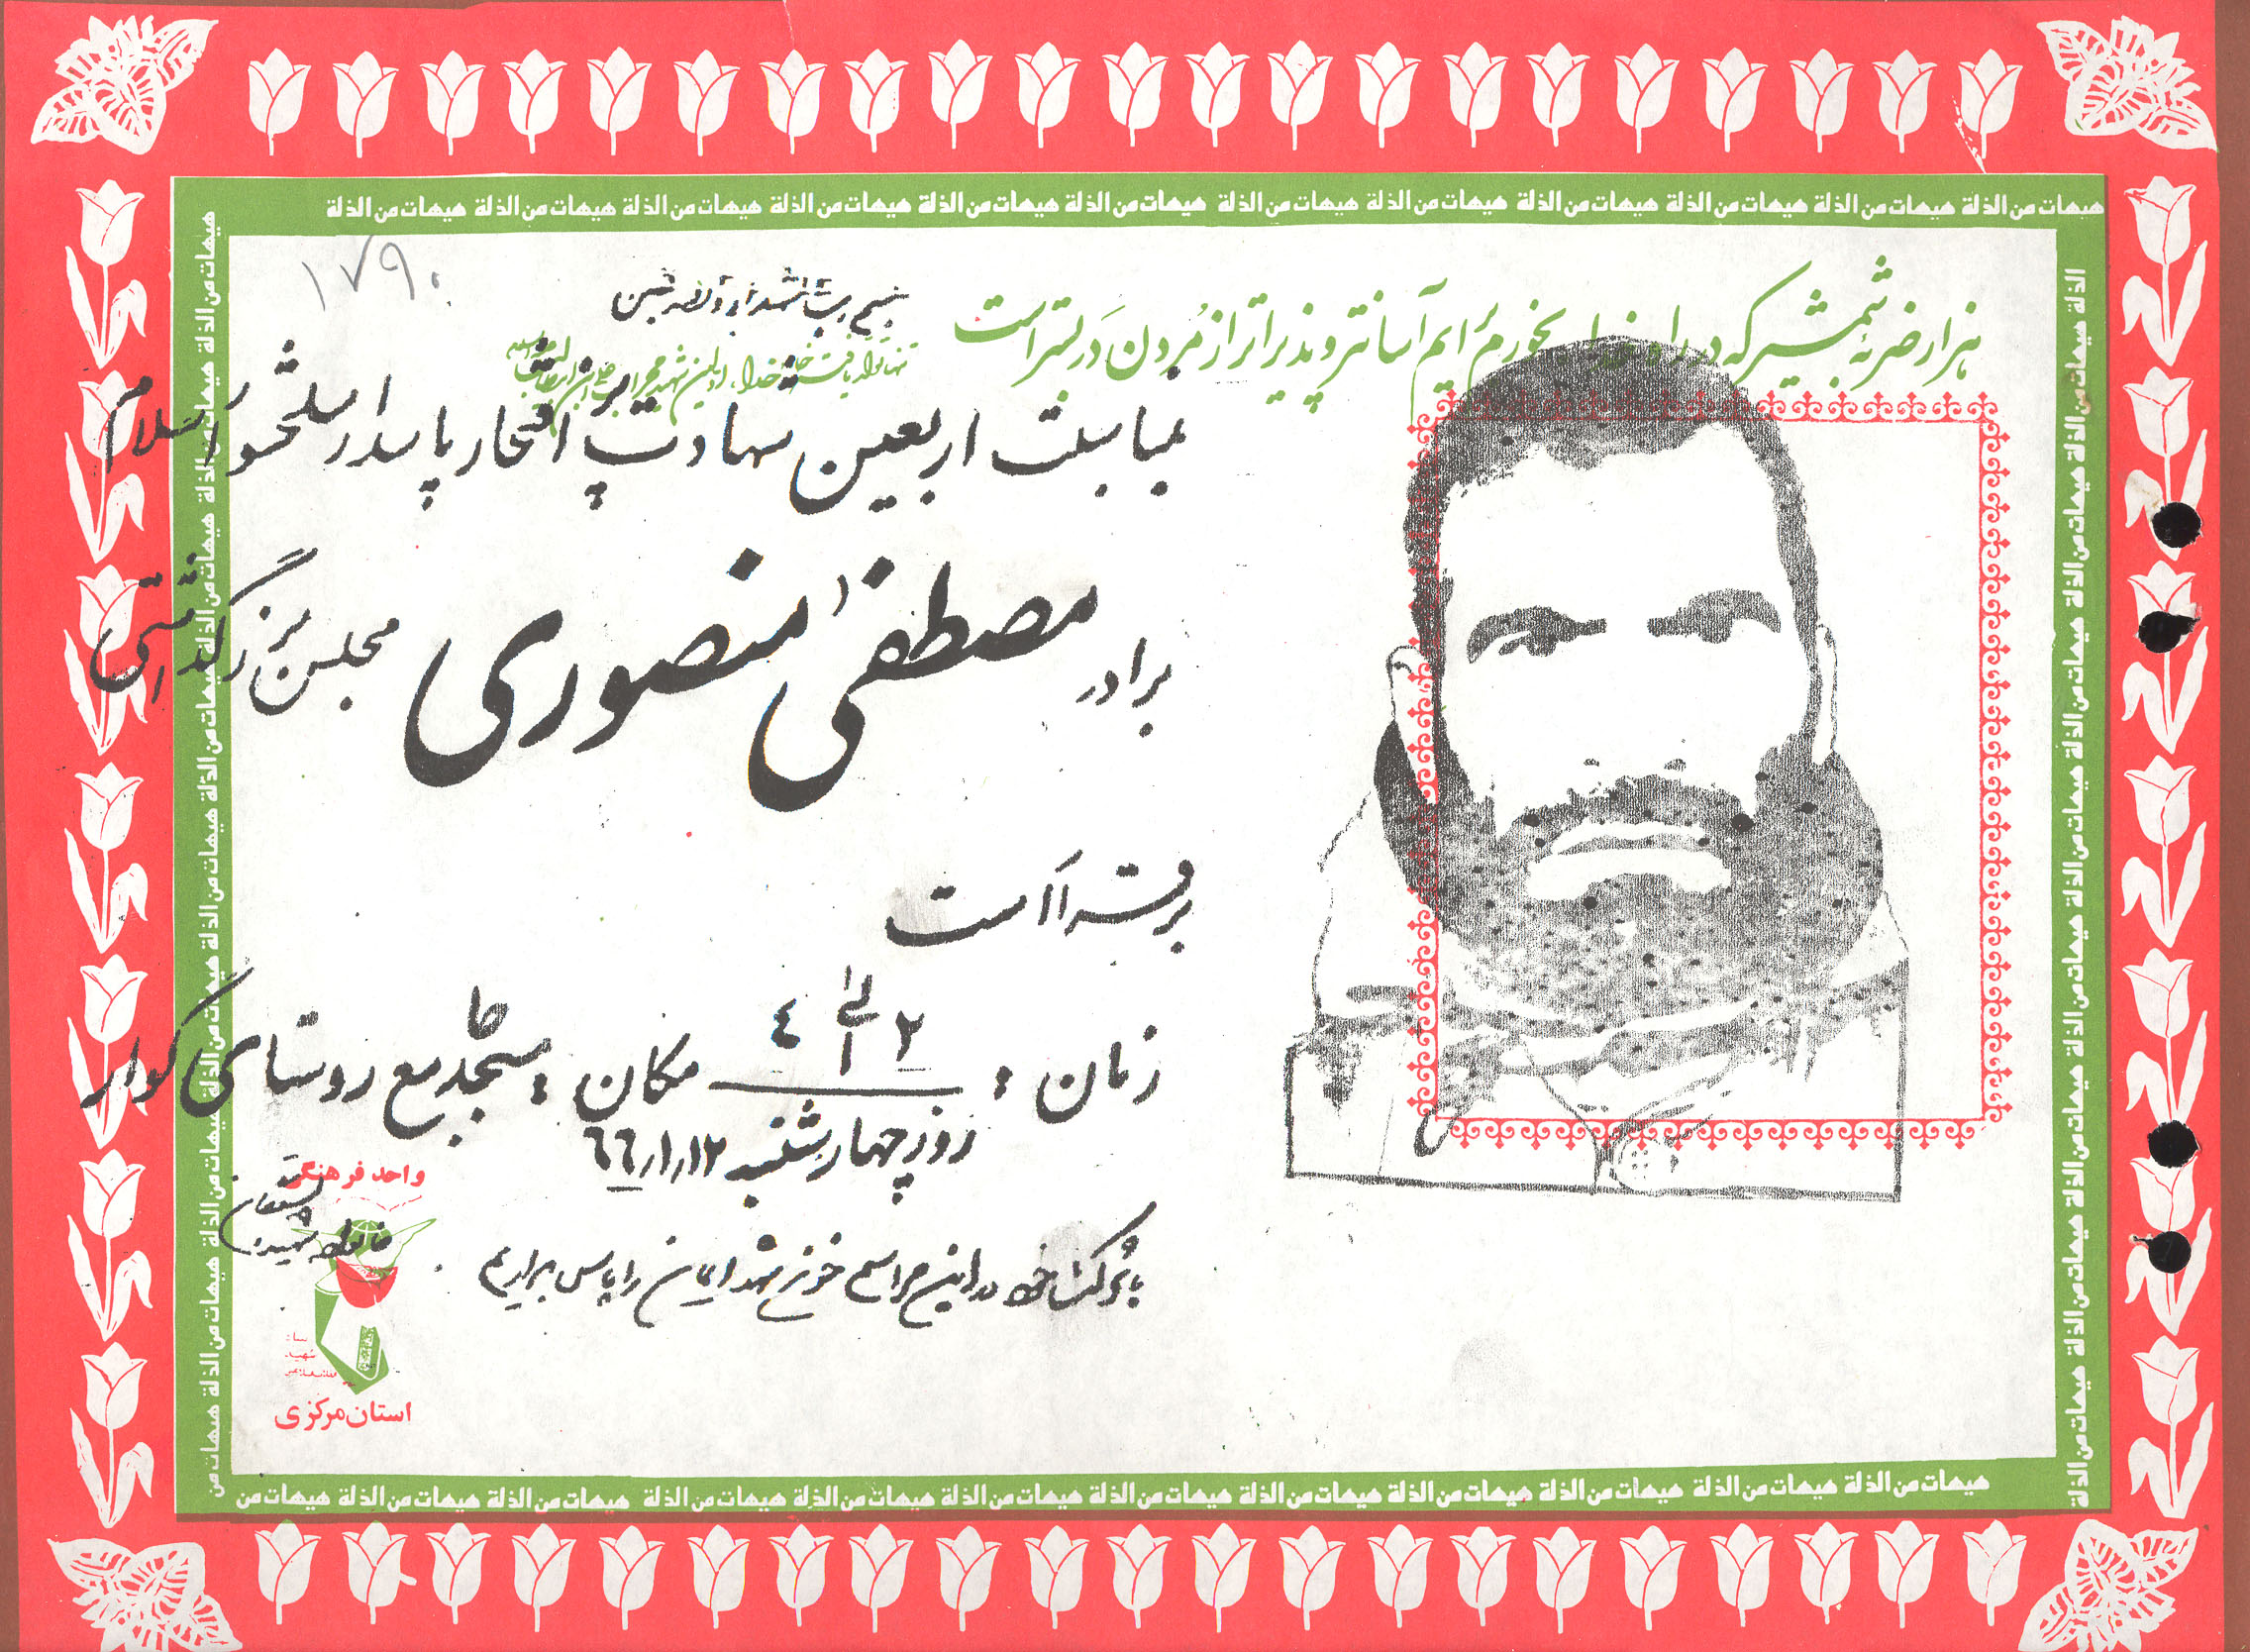 هیهات من الذلة هیهات من الذلة هیهات من الذلة هیهات من الذلة هیهات من الذلة هیهات من الذلة هیهات من الذلة هیهات من الذلة هیهات من الذلة هیهات من الذلة هیهات من الذلة هیهات من الذلة
۱۷۹۰
هزار ضربه شمشیر که در راه خدا بخورم برایم آسانتر و پذیراتر از مردن در بستر است
بمناسبت اربعین شهادت پر افتخار پاسدار سلحشور اسلام
برادر مصطفی منصوری مجلس بزرگداشتی
برقرار است
زمان : ۲ الی ٤ مکان : مسجد جامع روستای کوار
روز چهارشنبه ٦٦/۱/۱۲
با شرکت خود در این مراسم خون شهدایمان را پاس بداریم
واحد فرهنگی
خانواده شهید
بنیاد
شهید
استان مرکزی
هیهات من الذلة هیهات من الذلة هیهات من الذلة هیهات من الذلة هیهات من الذلة هیهات من الذلة هیهات من الذلة هیهات من الذلة هیهات من الذلة هیهات من الذلة هیهات من الذلة هیهات من